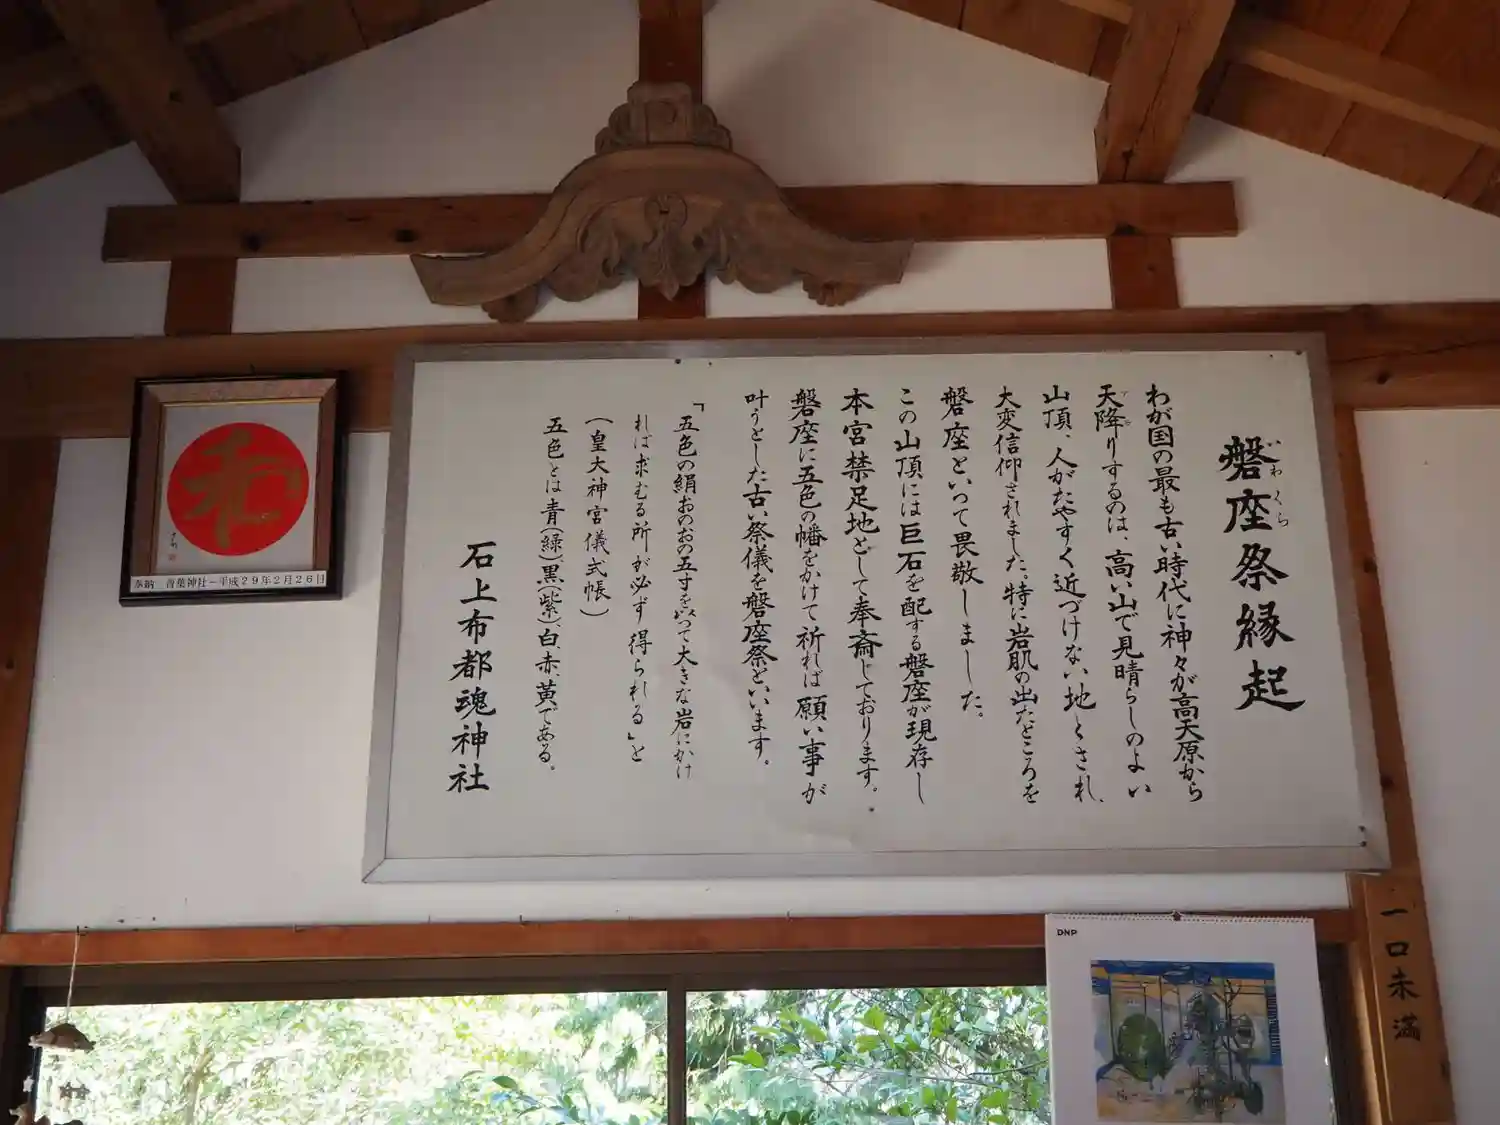 磐座祭縁起
いわくら
わが国の最も古い時代に神々が高天原から
天降りするのは、高い山で見晴らしのよい
山頂、人がたやすく近づけない地とされ、
大変信仰されました。特に岩肌の出たところを
磐座といって畏敬しました。
この山頂には巨石を配する磐座が現存し
本宮禁足地として奉斎じております。
磐座に五色の幡をかけて祈れば願い事が
叶うとした古い祭儀を磐座祭といいます。
「五色の絹おのおの五寸を以って大きな岩にかけ
れば求むる所が必ず得られる」と
(皇大神宮儀式帳)
五色とは青(緑)、黒(紫)、白、赤、黄である。
石上布都魂神社
奉納 青葉神社ー平成29年2月26日
DNP
一口未満